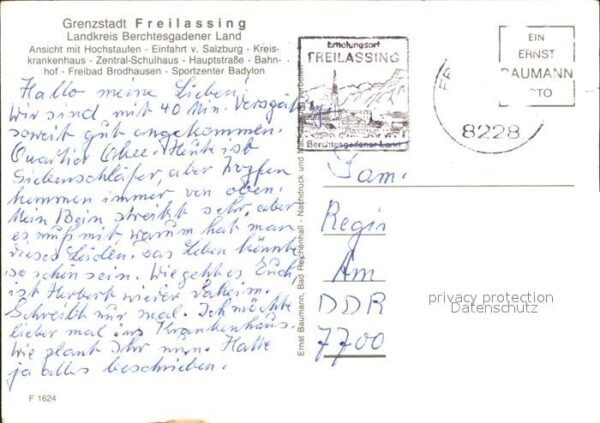 Grenzstadt Freilassing
Landkreis Berchtesgadener Land
Ansicht mit Hochstaufen - Einfahrt v. Salzburg - Kreis-
krankenhaus - Zentral-Schulhaus - Hauptstraße - Bahn-
hof - Freibad Brodhausen - Sportzenter Badylon
Hallo meine Lieben!
Wir sind mit 40 Min. Verspätung
soweit gut angekommen.
Quartier Okee. Heute ist
Siebenschläfer, aber Tropfen
kommen immer von oben.
Mein Bein streikt sehr, aber
es muß mit warum hat man
dieses Leiden. Das Leben könnte
so schön sein. Wie geht es Euch,
ist Herbert wieder daheim.
Schreibt mir mal. Ich möchte
lieber mal ins Krankenhaus.
Wie plant Ihr nun. Hatte
ja alles beschrieben.
F 1624
Ernst Baumann, Bad Reichenhall - Nachdruck und
Erholungsort
FREILASSING
Berchtesgadener Land
8228
EIN
ERNST
BAUMANN
FOTO
Fam.
Regin
Am
DDR
7700
privacy protection
Datenschutz